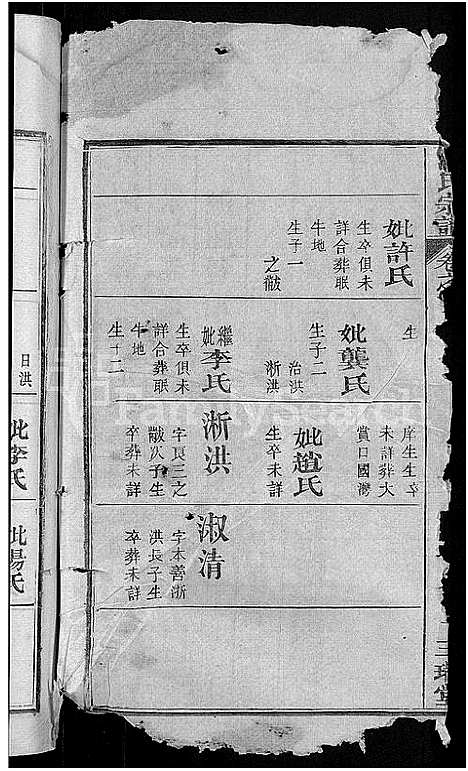 氏宗譜
卷
三
堂
妣許氏
生卒俱未
詳合葬眠
牛地
生子一
之㿱
生
妣龔氏
生子二
治洪
淅洪
繼妣李氏
生卒俱未
詳合葬眠
牛地
生子二
庠生生卒
未詳葬大
賞口國灣
妣趙氏
生卒未詳
淅洪
字良三之
㿱次子生
卒葬未詳
淑清
字本善淅
洪長子生
卒葬未詳
日洪
妣李氏
妣楊氏